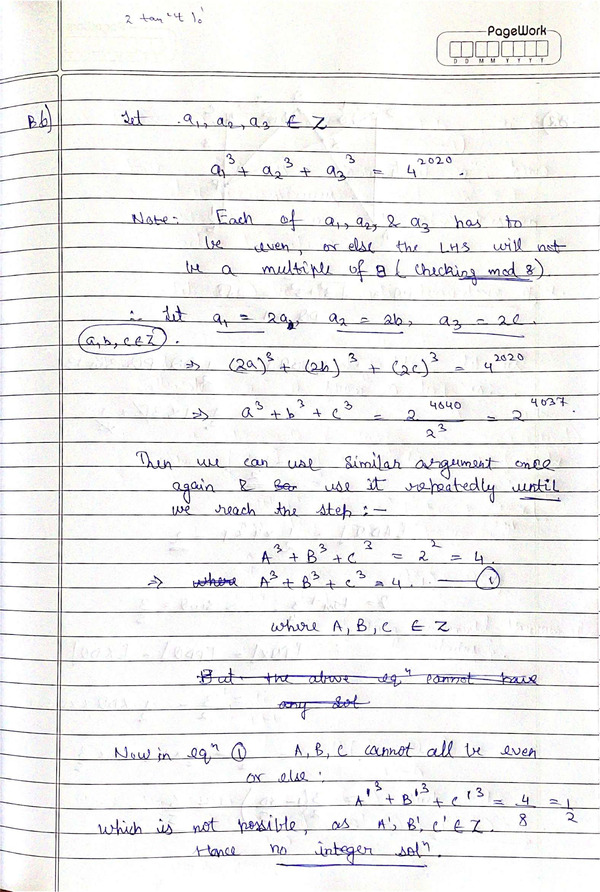 PageWork
D D M M Y Y Y Y
B6)
Let a₁, a₂, a₃ ∈ Z
a₁³ + a₂³ + a₃³ = 4²⁰²⁰.
Note: Each of a₁, a₂, & a₃ has to
be even, or else the LHS will not
be a multiple of 8 (checking mod 8).
∴ Let a₁ = 2a, a₂ = 2b, a₃ = 2c.
(a,b,c ∈ Z).
⇒ (2a)³ + (2b)³ + (2c)³ = 4²⁰²⁰
⇒ a³ + b³ + c³ = 2⁴⁰⁴⁰/2³ = 2⁴⁰³⁷.
Then we can use similar argument once
again & use it repeatedly until
we reach the step :-
A³ + B³ + C³ = 2² = 4.
⇒ where A³ + B³ + C³ = 4. —— ①
where A, B, C ∈ Z
But the above eqⁿ cannot have
any sol
Now in eqⁿ ① A, B, C cannot all be even
or else :
A'³ + B'³ + C'³ = 4/8 = 1/2
which is not possible, as A', B', C' ∈ Z.
Hence no integer solⁿ.